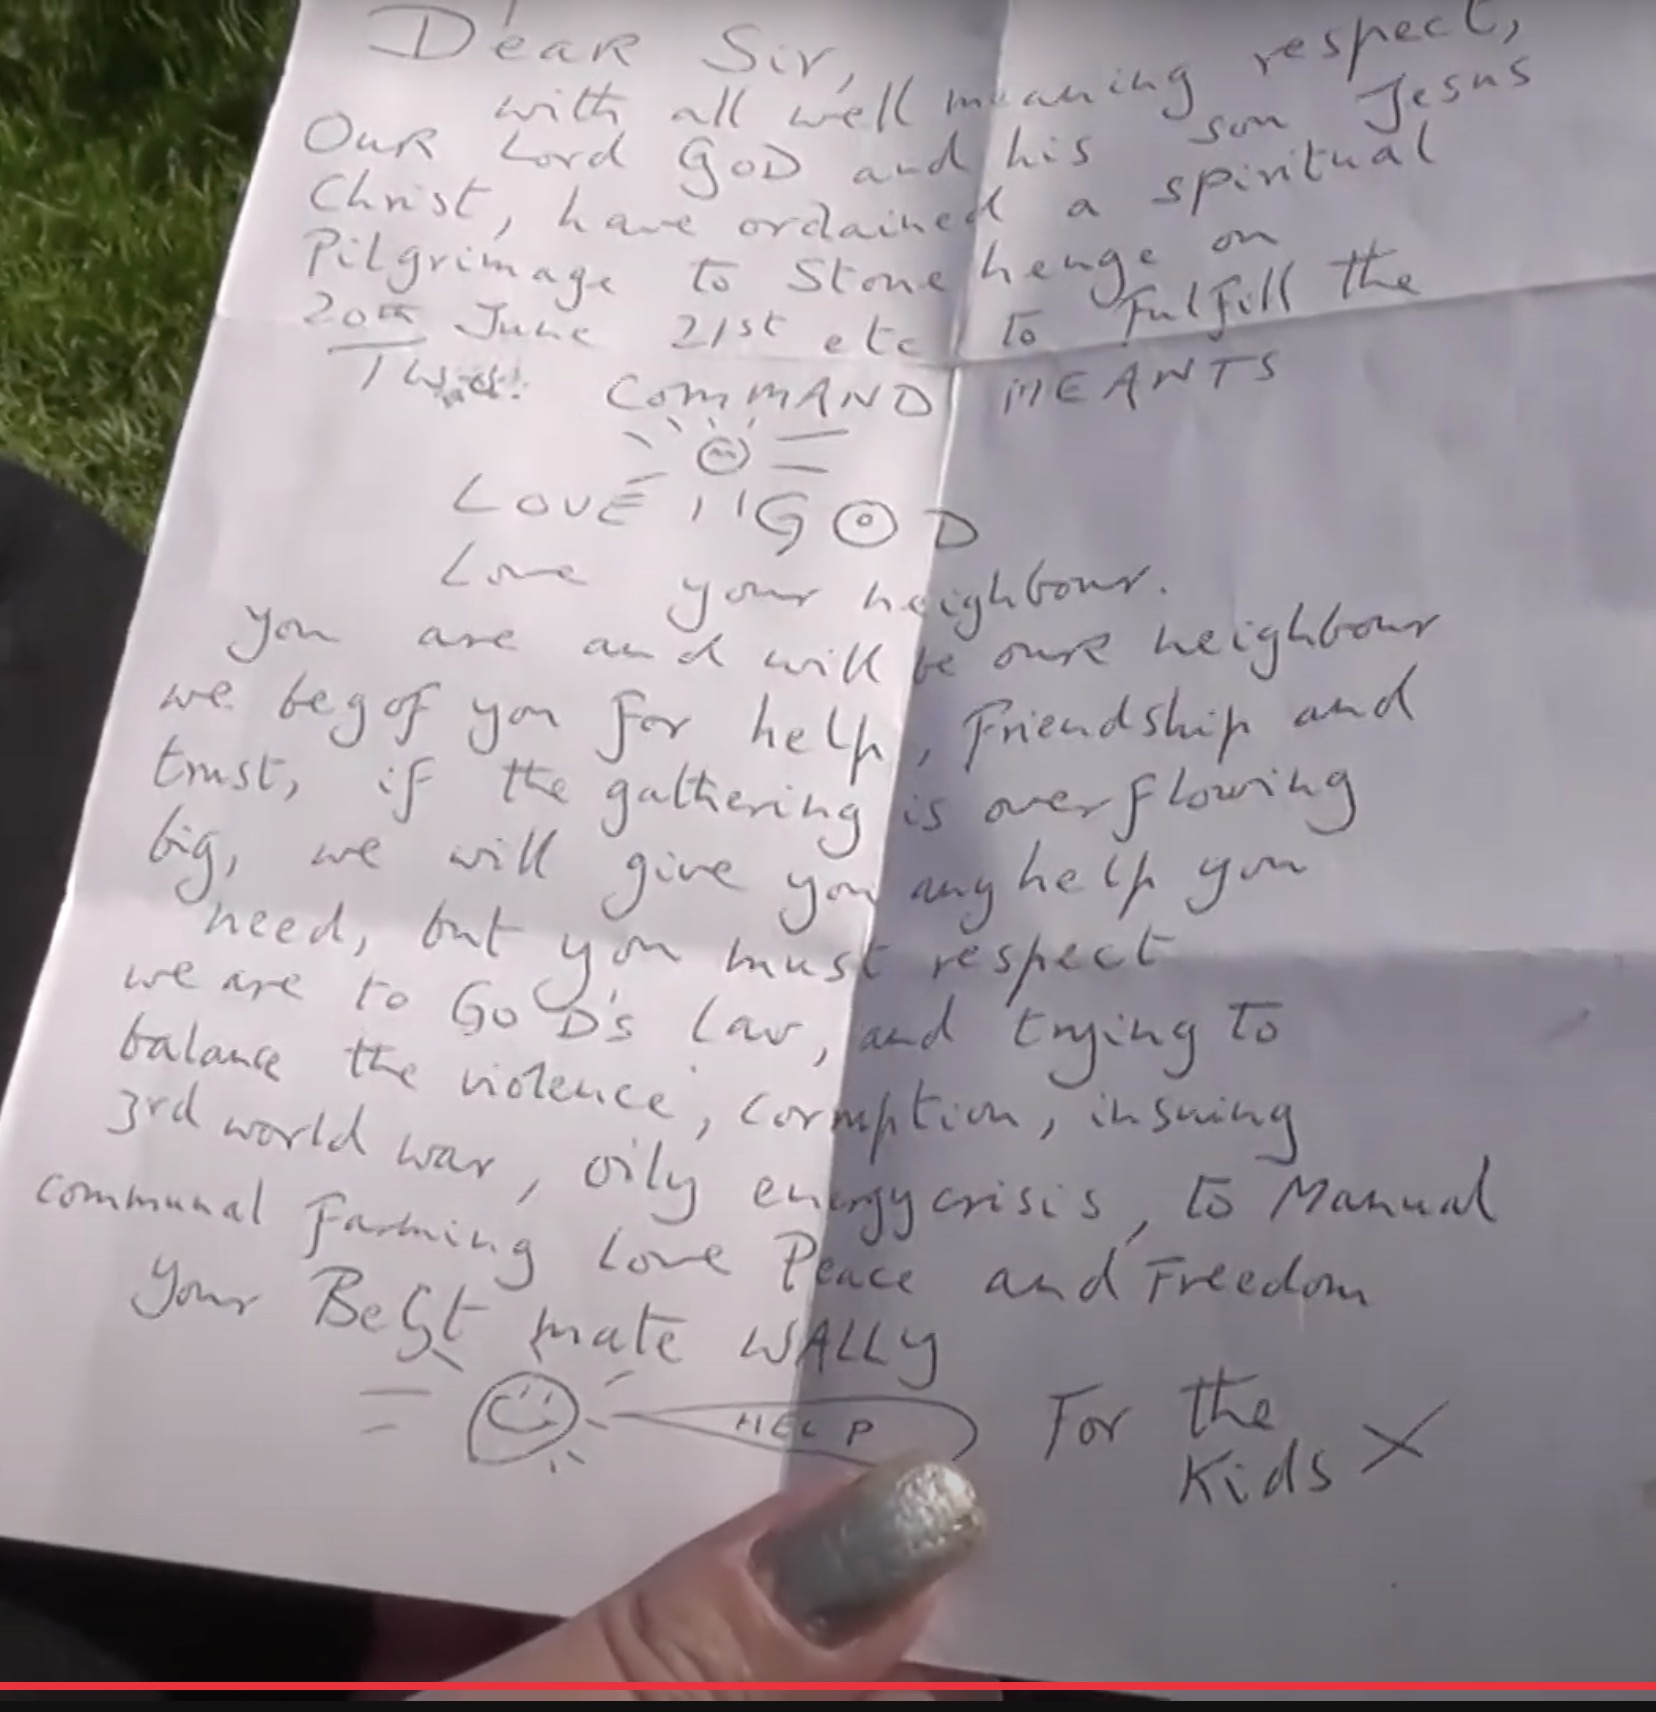 Dear Sir,
with all well meaning respect,
Our Lord GOD and his son Jesus
Christ, have ordained a spiritual
Pilgrimage to Stonehenge on
20th June 21st etc to Fulfill the
COMMANDMEANTS
LOVE GOD
Love your neighbour.
You are and will be our neighbour
we beg of you for help, Friendship and
trust, if the gathering is overflowing
big, we will give you any help you
need, but you must respect
we are to GOD's Law, and trying to
balance the violence, corruption, insuing
3rd world war, oily energy crisis, to Manual
communal Farming Love Peace and Freedom
Your Best mate WALLY
HELP For the
Kids X